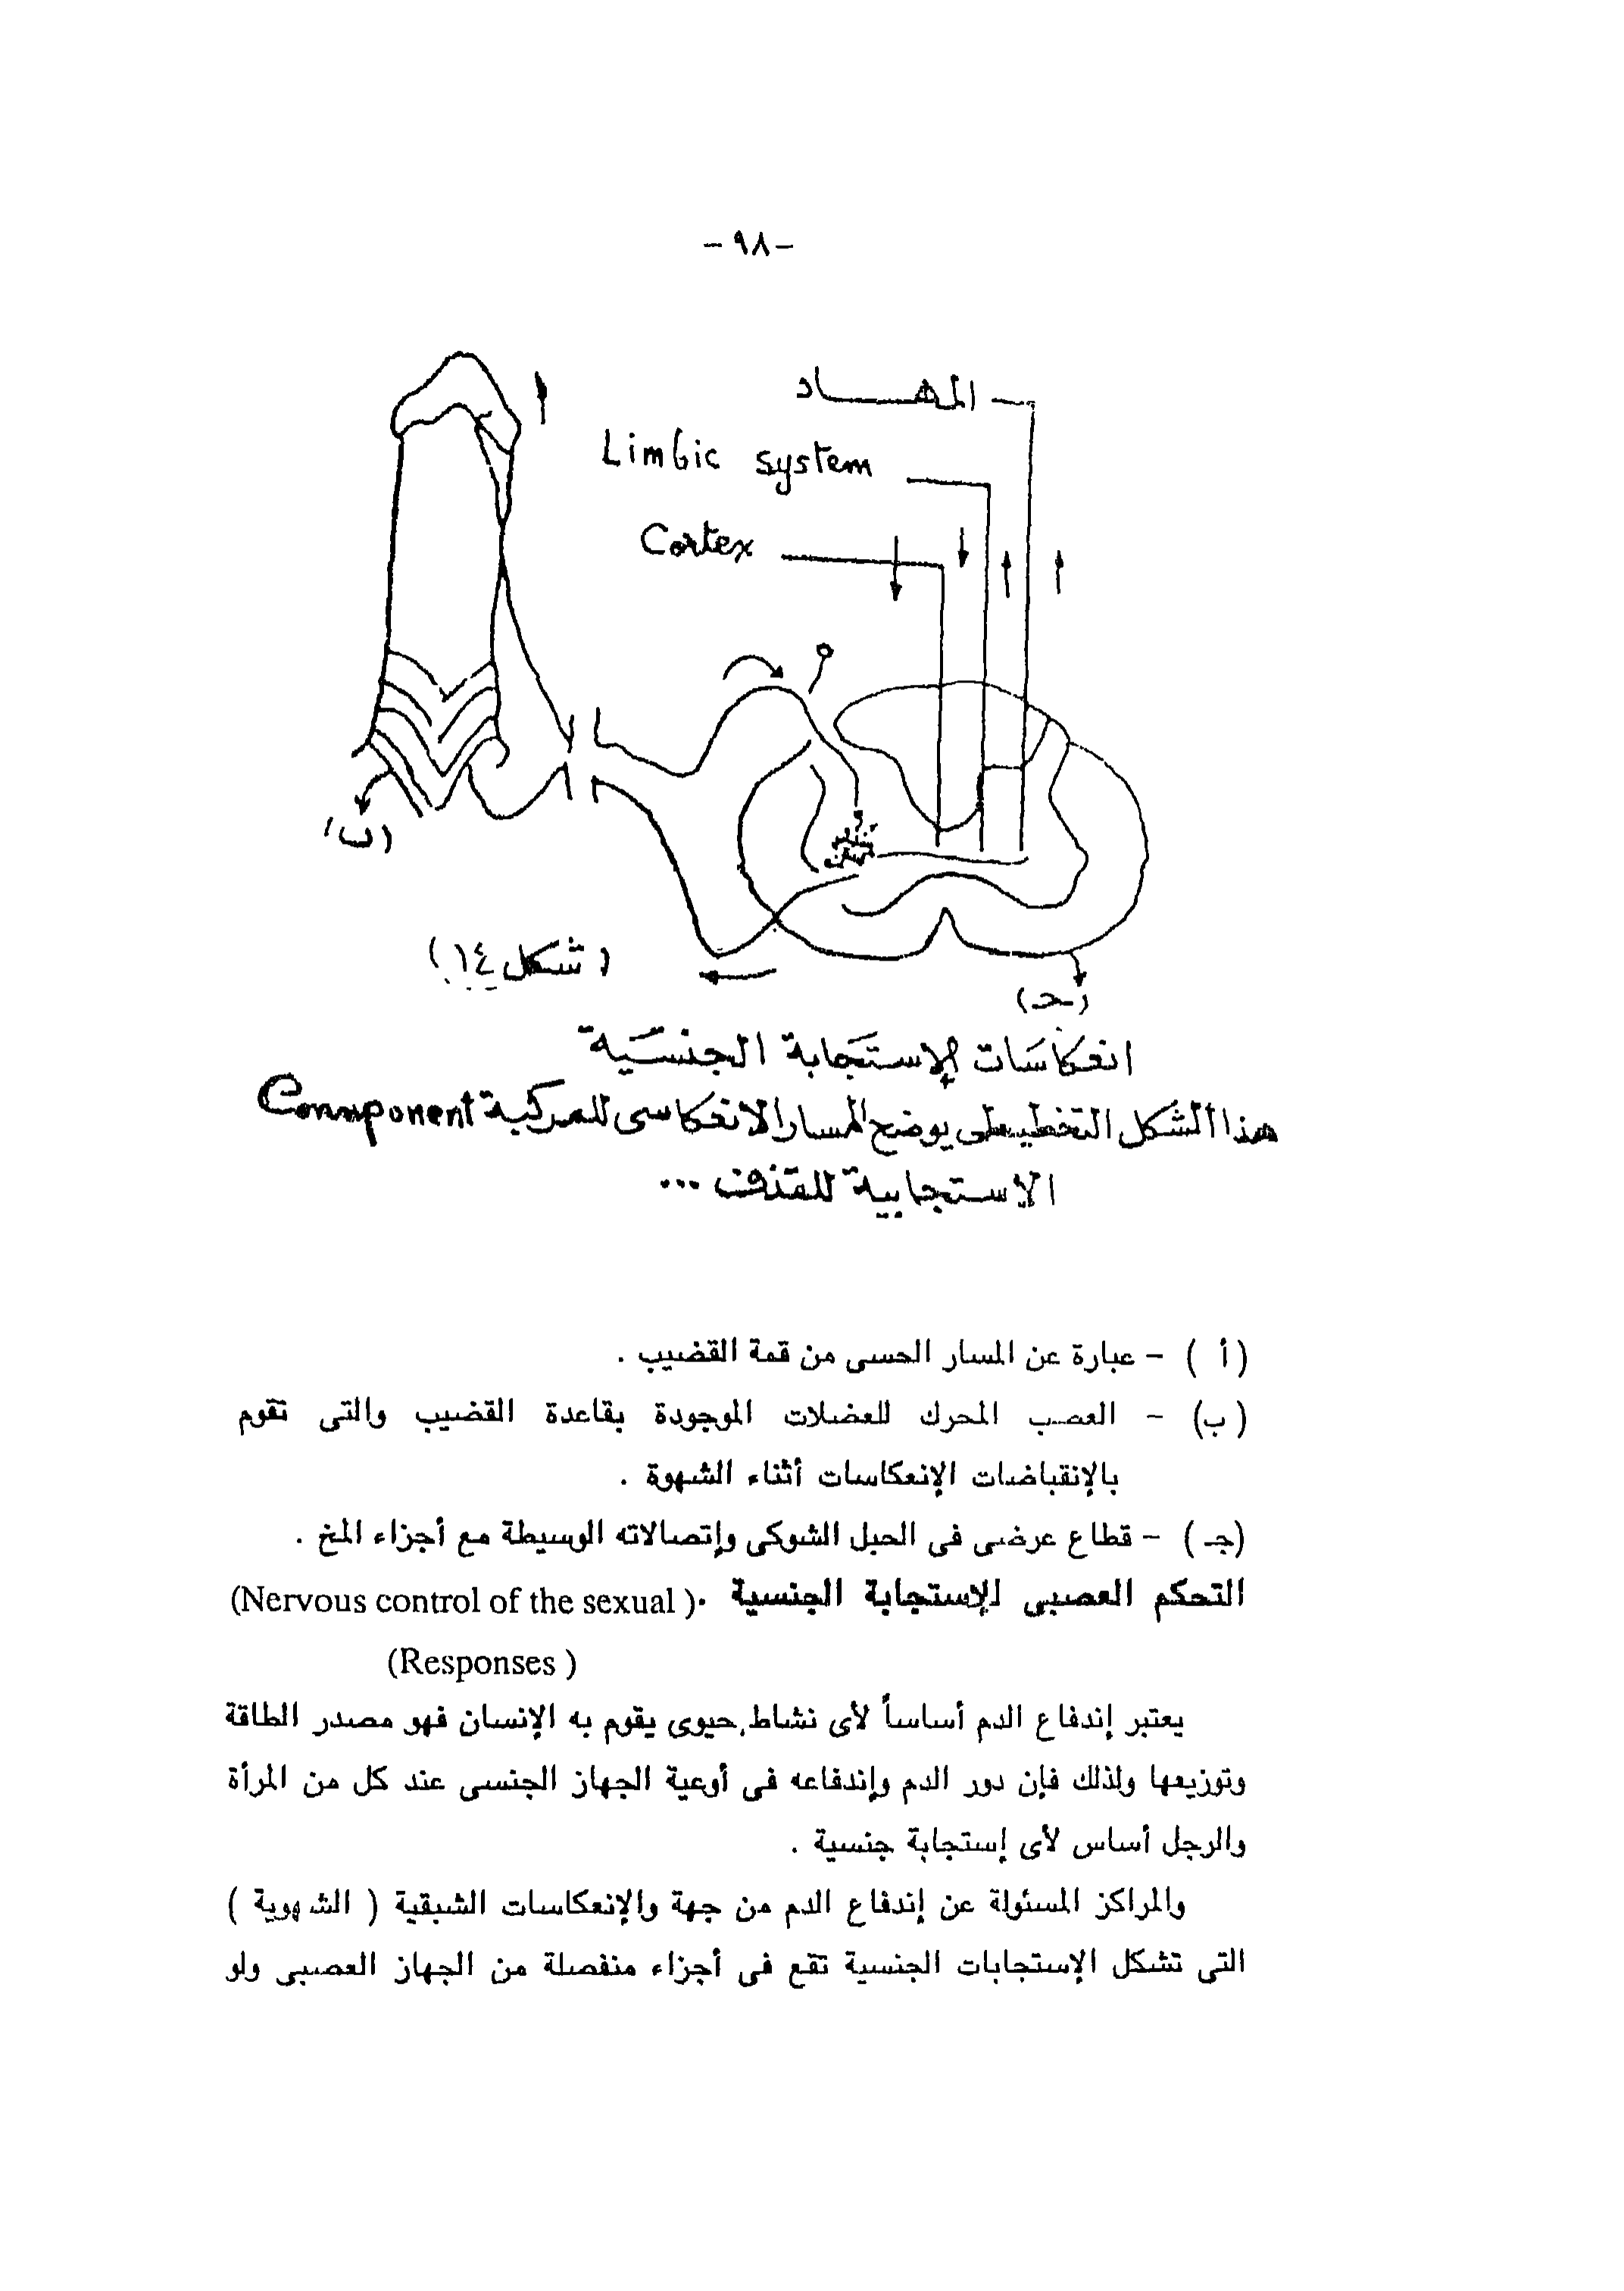 -٩٨-
المهاد
Limbic system
Cortex
(ب)
(شكل ١٤)
(جـ)
انعكاسات الإستجابة الجنسية
هذا الشكل التخطيطى يوضح المسار الانعكاسى للمركبة Component
الإستجابية للقذف ...
(أ ) - عبارة عن المسار الحسى من قمة القضيب .
(ب) - العصب المحرك للعضلات الموجودة بقاعدة القضيب والتى تقوم
بالإنقباضات الإنعكاسات أثناء الشهوة .
(جـ ) - قطاع عرضى فى الحبل الشوكى وإتصالاته الوسيطة مع أجزاء المخ .
التحكم العصبى للإستجابة الجنسية .( Nervous control of the sexual)
(Responses )
يعتبر إندفاع الدم أساساً لأى نشاط حيوى يقوم به الإنسان فهو مصدر الطاقة
وتوزيعها ولذلك فإن دور الدم وإندفاعه فى أوعية الجهاز الجنسى عند كل من المرأة
والرجل أساس لأى إستجابة جنسية .
والمراكز المسئولة عن إندفاع الدم من جهة والإنعكاسات الشبقية ( الشهوية )
التى تشكل الإستجابات الجنسية تقع فى أجزاء منفصلة من الجهاز العصبى ولو